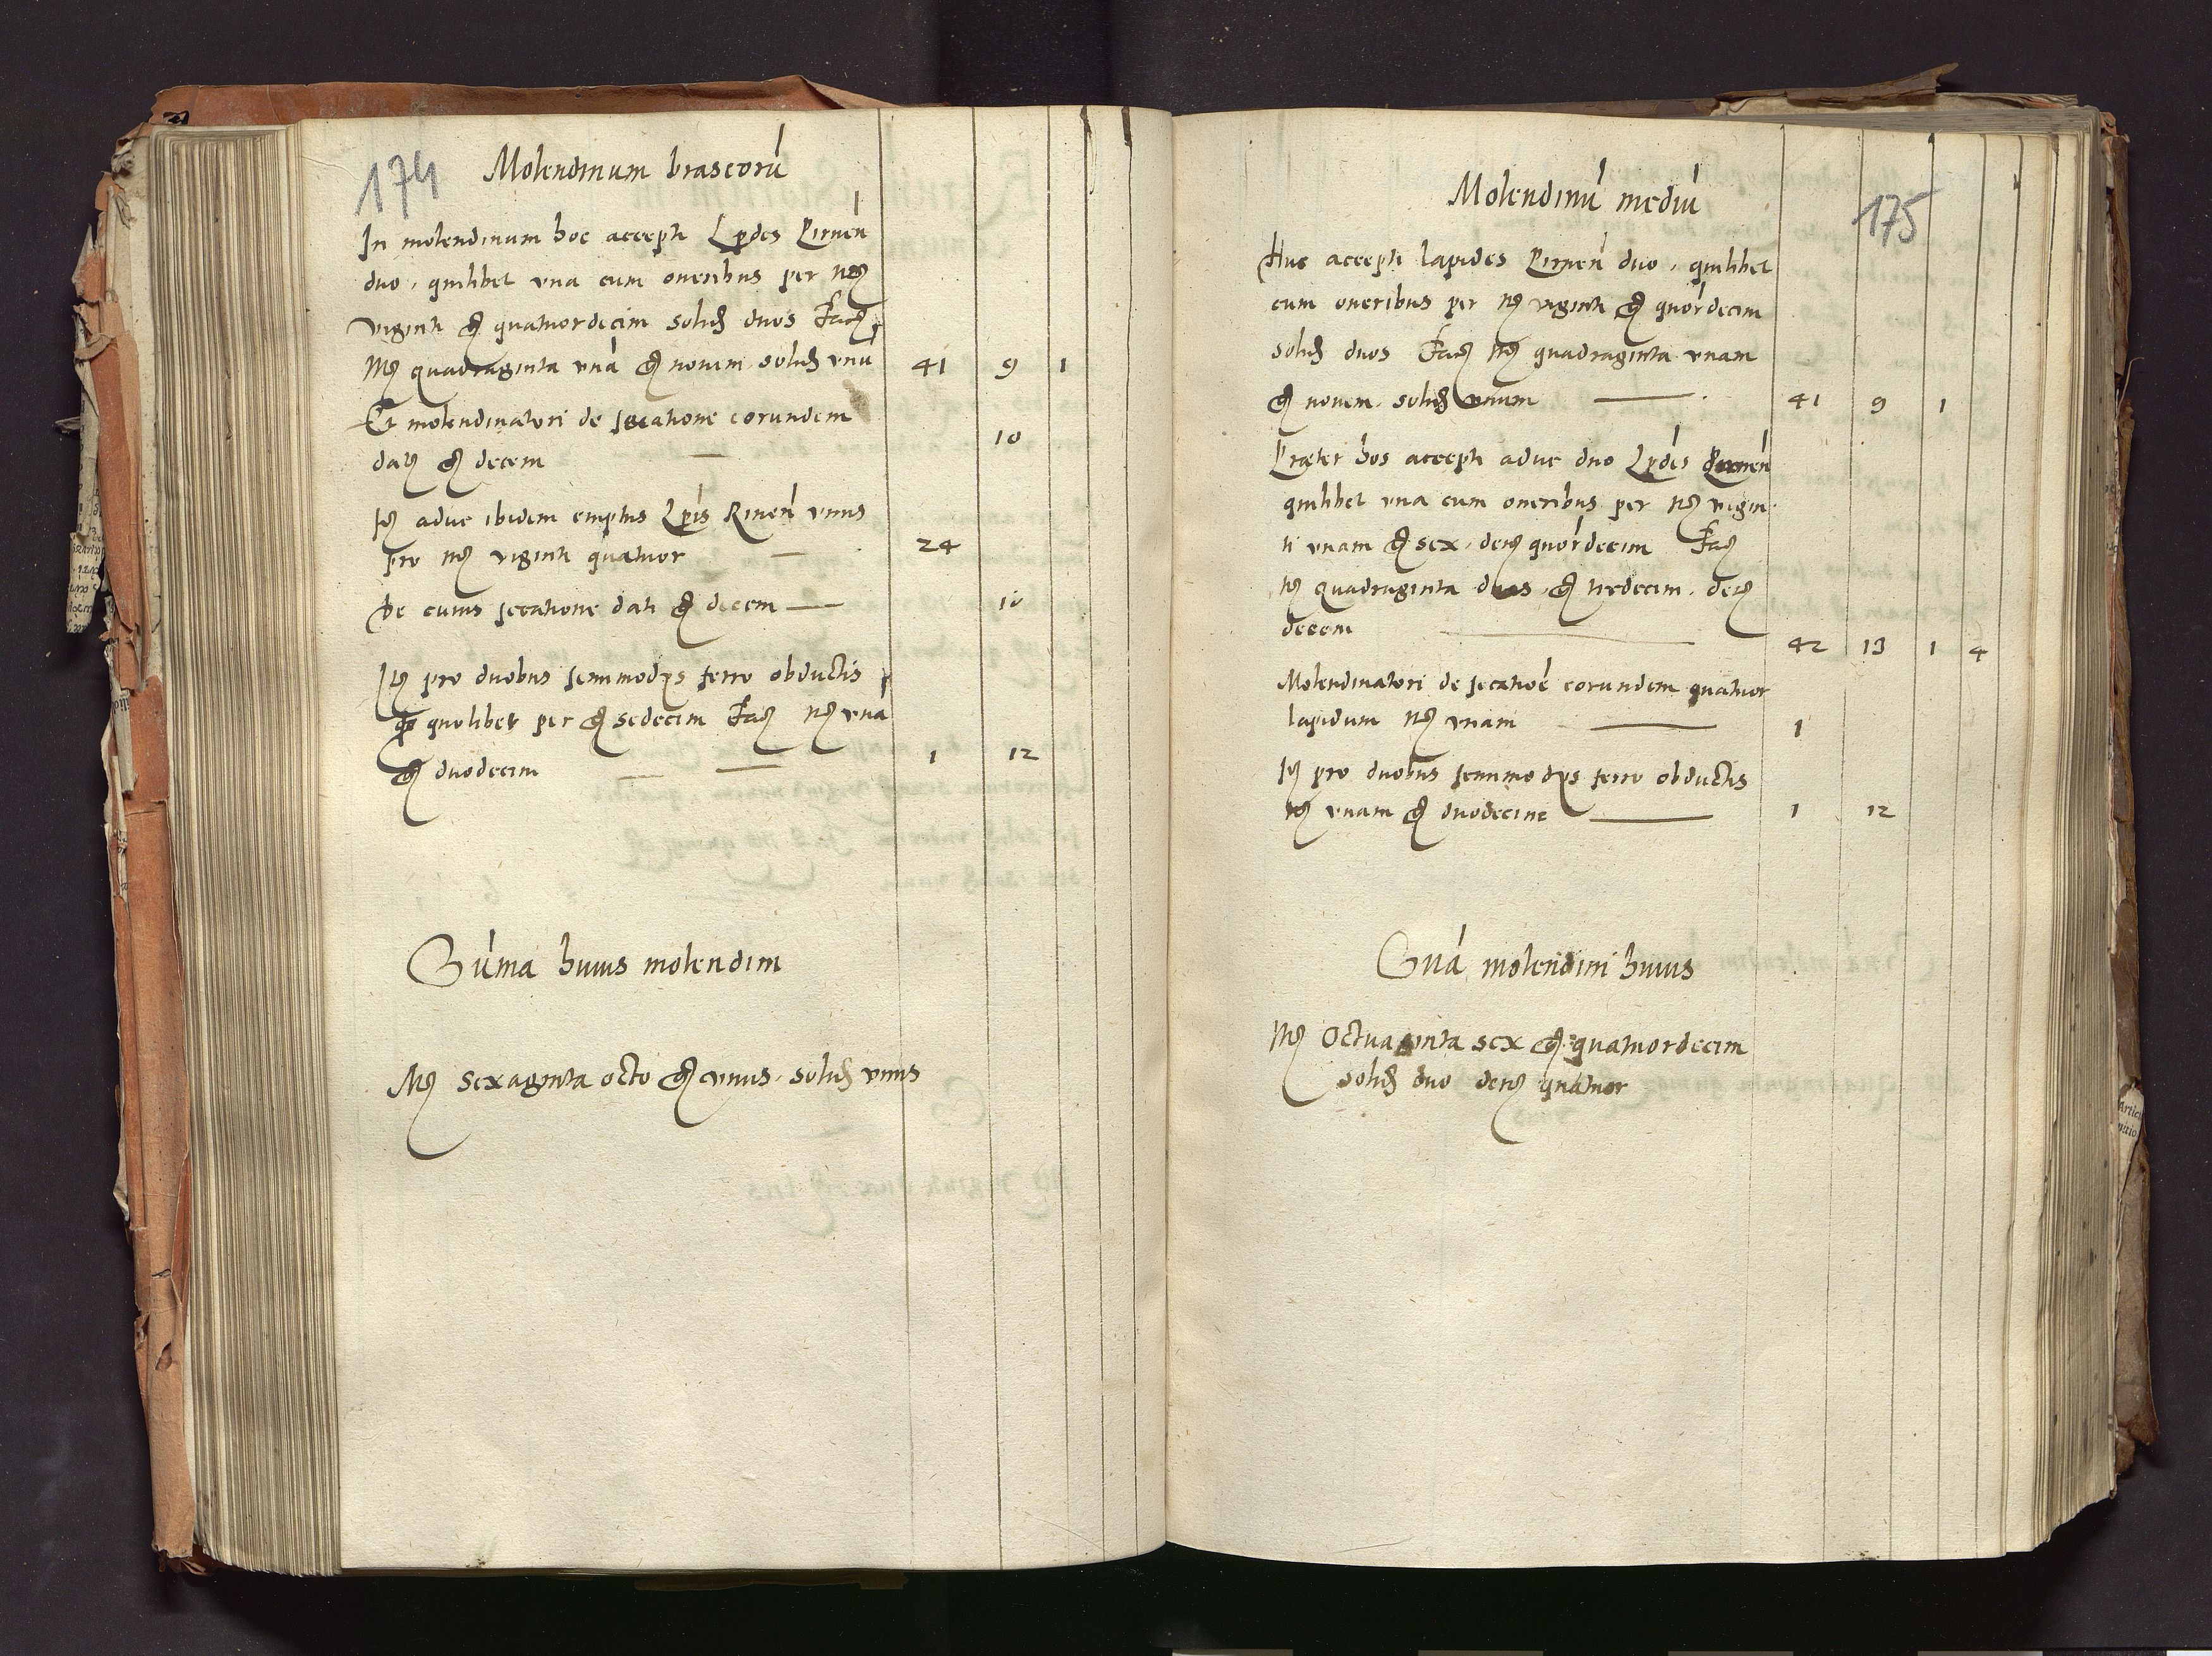 174
Molendinum braseorū
In molendinum hoc accepti Lṗdes Pirneñ
duo, quilibet vna cum oneribus per mrc̃
viginti gr̃ quatuordecim solid̃ duos Faciũt
Mrc̃ quadraginta vnā gr̃ novem, solid̃ vnū 41 9 1
Et molendinatori de secatione eorundem
datũ gr̃ decem — 10
Itẽ aduc ibidem emptus Lṗis Rineñ vnus
pro mrc̃ viginti quatuor — 24
De cuius secatione dati gr̃ decem — 10
Itẽ pro duobus semimodys ferro obductis
pro quolibet per gr̃ sedecim Faciũt Mrc̃ vna
gr̃ duodecim — — 1 12
Sūma huius molendini
Mrc̃ sexaginta octo gr̃ vnus, solid̃ vnus
175
Molendinū mediū
Huc accepti lapides Pirneñ duo, quilibet
cum oneribus per mrc̃ viginti gr̃ quordecim
solid̃ duos Faciũt mrc̃ quadraginta vnam
gr̃ novem, solid̃ vnum — 41 9 1
Præter hos accepti aduc duo Lṗdes Pirneñ
quilibet vna cum oneribus per mrc̃ vigin
ti vnam gr̃ sex, den̄ quordecim Faciũt
mrc̃ quadraginta duas, gr̃ tredecim, den̄
decem — 42 13 1 4
Molendinatori de secatioē eorundem quatuor
lapidum mrc̃ vnam — 1
Itẽ pro duobus semimodys ferro obductis
mrc̃ vnam gr̃ duodecim — 1 12
Suā molendini huius
Mrc̃ Octuaginta sex gr̃ quatuordecim
solid̃ duo den̄ quatuor